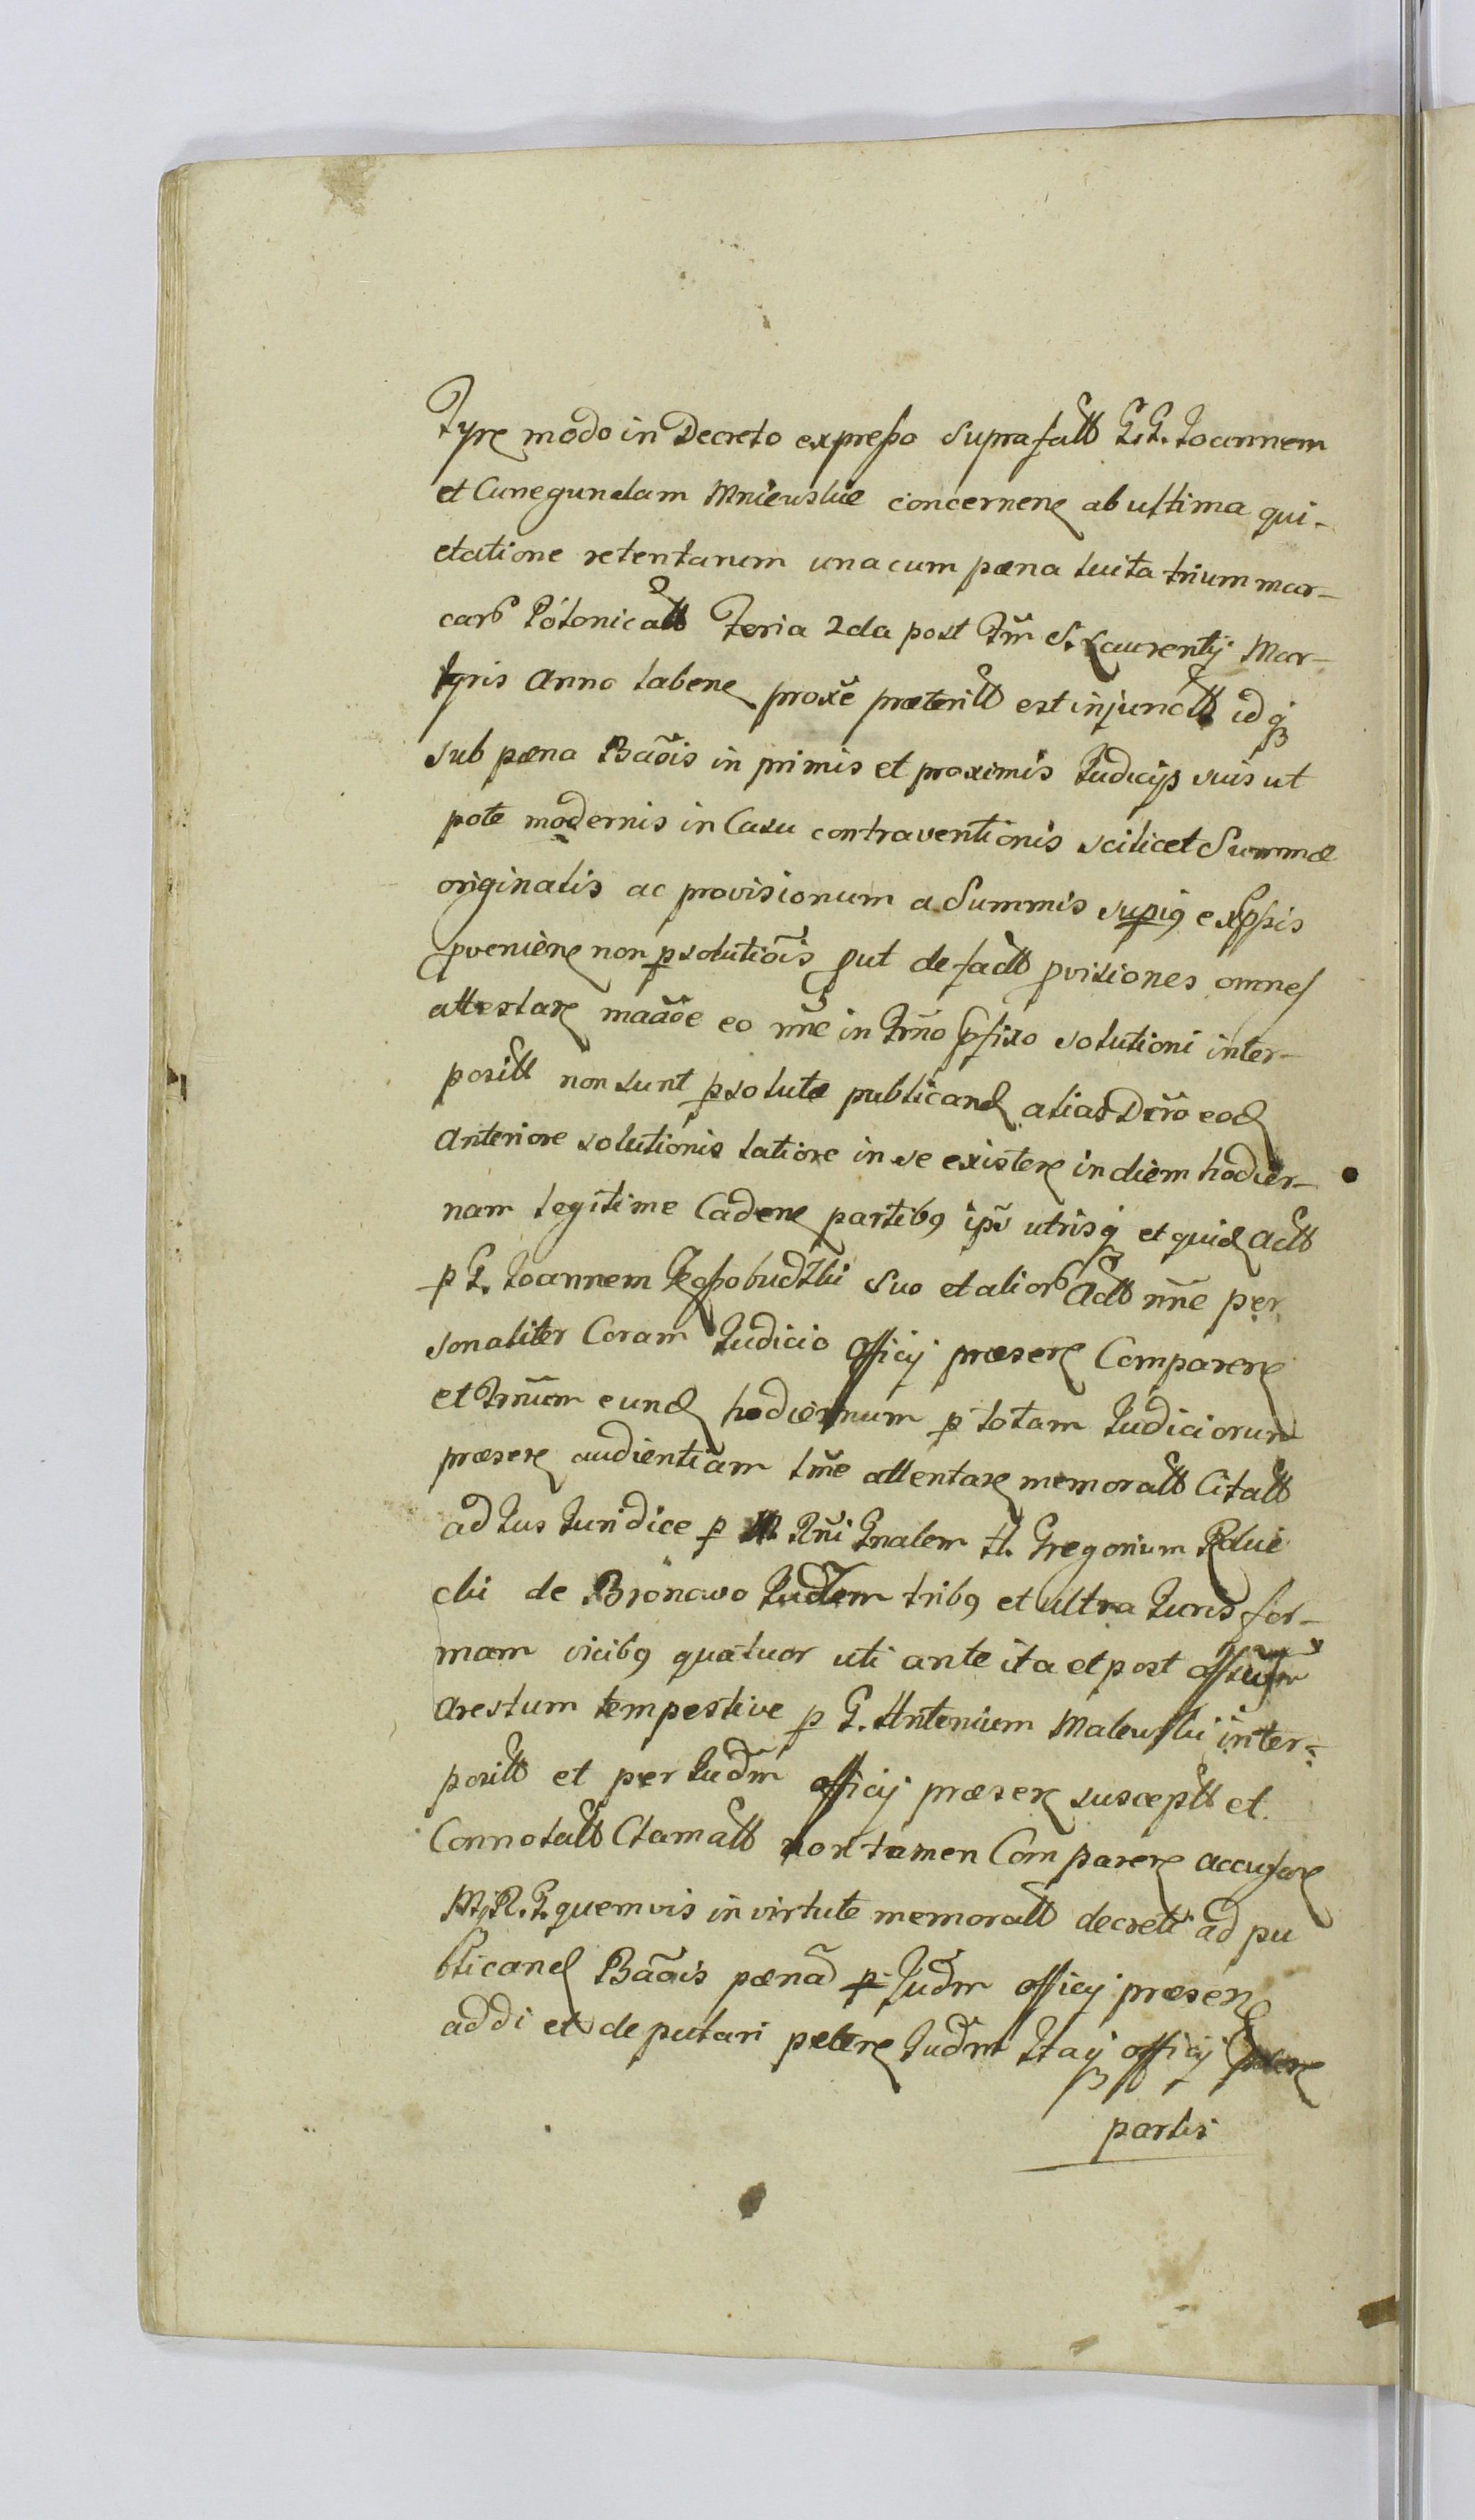 modo in Decreto expresso suprafatt G.G. Joannem
et Cunegundam Mniewskie concernen ab ultima qui-
etatione retentarum una cum pæna luita trium mar-
carƄ Polonicall Feria 2da post Fm̃ S. Laurentij Mar-
tyris Anno laben proxe præteritt est injunctt idq̨
sub pæna Bañois in primis et proximis Judicijs suis ut
pote modernis in Casu contraventionis scilicet Summæ
originalis ac provisionum a Summis supiꝰ expssis
pvenien non psolutiõis put de factt pvisiones omnes
attestan eo nñe in Tr̃mno pfixo solutioni inter-
positt non sunt psolutæ publicand alias Dcr̃o eod
anteriore solutionis latiore in se existen in diem hodier-
nam legitime Caden partibꝰ ips̃ utrisq̨ et quid Actt
p G. Joannem suo et aliorƄ Actt nñe per
sonaliter Coram Judicio Officij præsen Comparen
et Tr̃mnum eund hodiernum p totam Judiciorum
præsen audientiam lm̃e attentan memoratt Citatt
ad Jus Juridice p M. Rñi Gnalem H. Gregorium
cki de Bronowo Judtem tribꝰ et ultra Juris for-
mam vicibꝰ quatuor uti ante ita et post
arestum tempestive p G. Antonium Malewski inter-
positt et per Judm̃ officij præsen susceptt et
Connotatt Clamatt non tamen Comparen accusan
M. R. G. quemvis in virtute memoratt decreti ad pu
blicand Bañois pænã p Judm̃ officij præsen
addi et deputari peten Judm̃ Itaq̨ officij præsen
partis